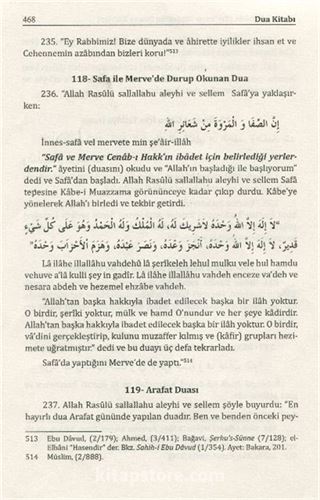 468 Dua Kitabı
235. "Ey Rabbimiz! Bize dünyada ve âhirette iyilikler ihsan et ve
Cehennemin azâbından bizleri koru!"513
118- Safa ile Merve'de Durup Okunan Dua
236. "Allah Rasûlü sallallahu aleyhi ve sellem Safâ'ya yaklaşır-
ken:
إِنَّ الصَّفَا وَ الْمَرْوَةَ مِنْ شَعَائِرِ اللَّهِ
İnnes-safâ vel mervete min şe'âir-illâh
"Safâ ve Merve Cenâb-ı Hakk'ın ibâdet için belirlediği yerler-
dendir." âyetini (duasını) okudu ve "Allah'ın başladığı ile başlıyorum"
dedi ve Safâ'dan başladı. Allah Rasûlü sallallahu aleyhi ve sellem Safâ
tepesine Kâbe-i Muazzama görününceye kadar çıkıp durdu. Kâbe'ye
yönelerek Allah'ı birledi ve tekbir getirdi.
"لَا إِلَهَ إِلَّا اللَّهُ وَحْدَهُ لَا شَرِيكَ لَهُ، لَهُ الْمُلْكُ وَلَهُ الْحَمْدُ وَهُوَ عَلَى كُلِّ شَيْءٍ
قَدِيرٌ، لَا إِلَهَ إِلَّا اللَّهُ وَحْدَهُ، أَنْجَزَ وَعْدَهُ، وَنَصَرَ عَبْدَهُ، وَهَزَمَ الْأَحْزَابَ وَحْدَهُ"
Lâ ilâhe illallâhu vahdehû lâ şerîkeleh lehul mulku vele hul hamdu
vehuve a'lâ kulli şey in gadîr. Lâ ilâhe illallâhu vahdeh enceze va'deh ve
nesara abdeh ve hezemel ehzâbe vahdeh.
"Allah'tan başka hakkıyla ibadet edilecek başka bir ilâh yoktur.
O birdir, şerîki yoktur, mülk ve hamd O'nundur ve her şeye kâdirdir.
Allah'tan başka hakkıyla ibadet edilecek başka bir ilâh yoktur. O birdir,
vâ'dini gerçekleştirip, kulunu muzaffer kılmış ve (kâfir) grupları hezi-
mete uğratmıştır." dedi ve bu duayı üç defa tekrarladı.
Safâ'da yaptığını Merve'de de yaptı."514
119- Arafat Duası
237. Allah Rasûlü sallallahu aleyhi ve sellem şöyle buyurdu: "En
hayırlı dua Arafat gününde yapılan duadır. Ben ve benden önceki pey-
513 Ebu Dâvud, (2/179); Ahmed, (3/411); Bağavi, Şerhu's-Sünne (7/128); el-
Elbâni "Hasendir" der. Bkz. Sahih-i Ebu Dâvud (1/354). Ayet: Bakara, 201.
514 Müslim, (2/888).